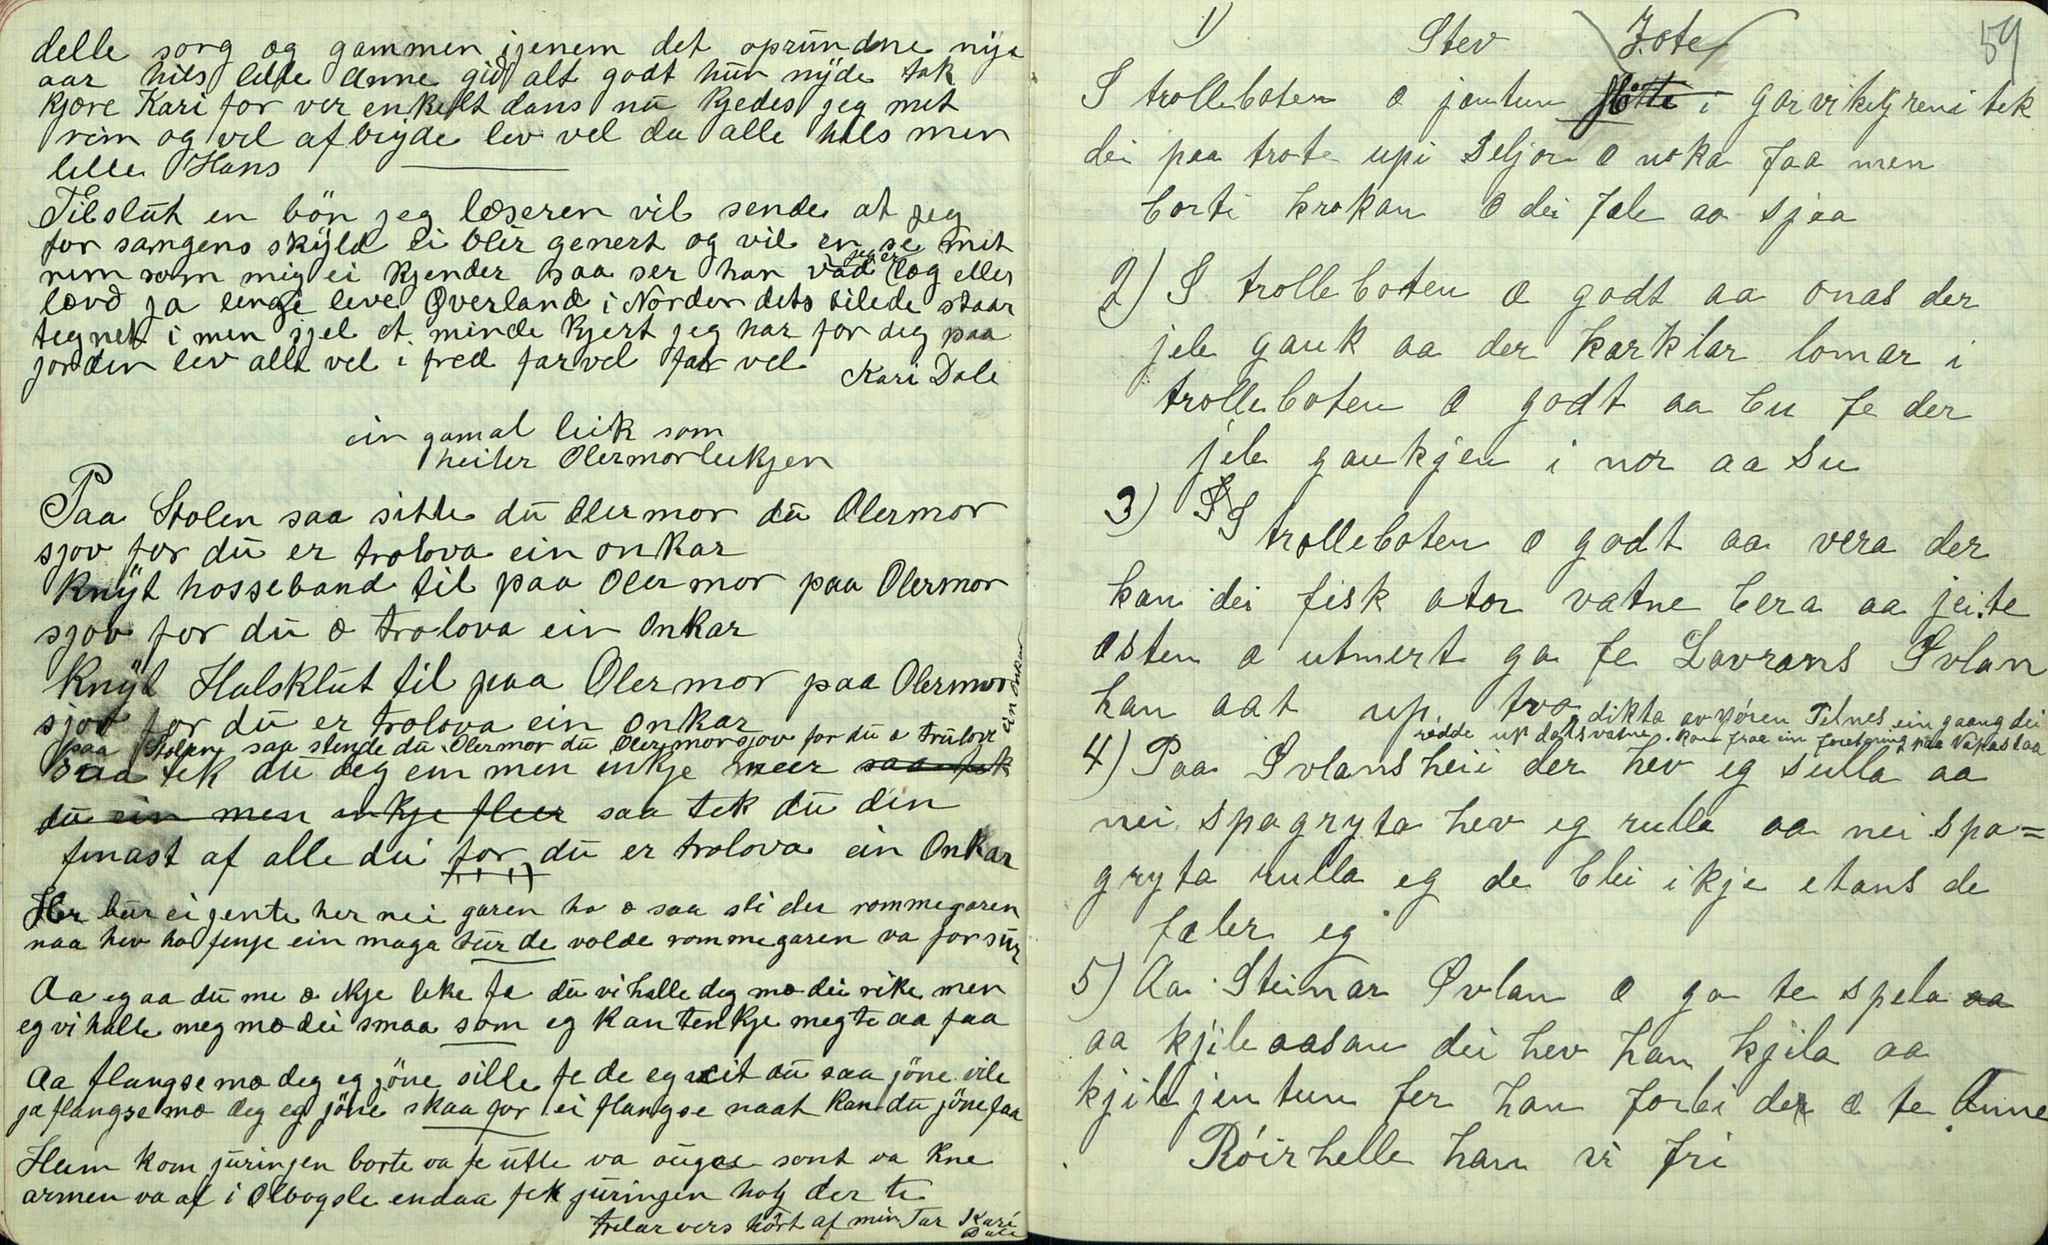 delle sorg og gammen igenem det oprundne nye
aar hils lille Anne gid alt godt hun nyde tak
kjære Kari for ver enkelt dans nu kjedes jeg met
rim og vil afbryde lev vel du alle hils min
lille Hans
Tilslut en bön jeg læseren vil sende at jeg
for sangens skyld ei blir genert og vil en se mit
rim som mig ei kjender saa ser han vad jeg er læg eller
lærd ja lenge leve Øverland i Norden dets bilede staar
tegnet i min sjel et minde kjert jeg har for dig paa
jorden lev alle vel i fred farvel far vel
Kari Dale
ein gamal leik som
heiter Olermorleikjen
Paa Stolen saa sitte du Olermor du Olermor
sjov for du er trolova ein onkar
Knyt hosseband til paa Olermor paa Olermor
sjov for du æ trolova ein Onkar
Knyt Halsklut til paa Olermor paa Olermor
sjov for du er trolova ein Onkar
paa Stolen saa stende du Olermor du Olermor sjov for du æ trulova ein Onkar
saa tek du deg ein men inkje meer saa tek
du ein men inkje fleer saa tek du din
finast af alle dei for du er trolova ein Onkar
Her bur ei jente her nei garen ho æ saa sli der rommegaren
naa hev ho fenje ein maga tur de volde rommegaren va for sur
Aa eg aa du me æ ikje like fe du vi halle deg mæ dei rike men
eg vi halle meg mæ dei smaa som eg kan tenkje meg te aa faa
Aa flangse mæ deg eg jöne sille fe de eg veit du saa jöne vile
ja flangse mæ deg eg jöne skaa for ei flangse naat kan du jöne faa
Heim kom juringen borte va fe utte va ouga sont va kne
armen va af i Olbogele endaa fek juringen hog der te
trelar vers hört af min Far Kari Dale
59
1) Stev
Fote
I trolleboten æ jentun flötte i garvikegreni tek
dei paa trote upi Seljor æ noka faa men
borti krokan æ dei fæle ao sjaa
2) I trolleboten æ godt aa onas der
jele gauk aa der karklar lomar i
trolleboten æ godt aa bu fe der
jele gaukjen i nor aa su
3) I trolleboten æ godt aa vera der
kan dei fisk ator vatne bera aa jeite
osten æ utmert ga fe Lavrans Øvlan
han aat up tvo
dikta av Höien Telnes ein gaang dei
rodde up dals vatne kom fraa ein foretning paa Napastaa
4) Paa Øvlansheii der hev eg sulla aa
nei spagryta hev eg rulla aa nei spa=
gryta rulla eg de blei ikje etans de
fæler eg
5) Aa Steinar Øvlan æ ga te spela aa
aa kjile aasan dei hev han kjila aa
kjile jentun fer han forbi der æ te Anne
Röirhelle han vi fri